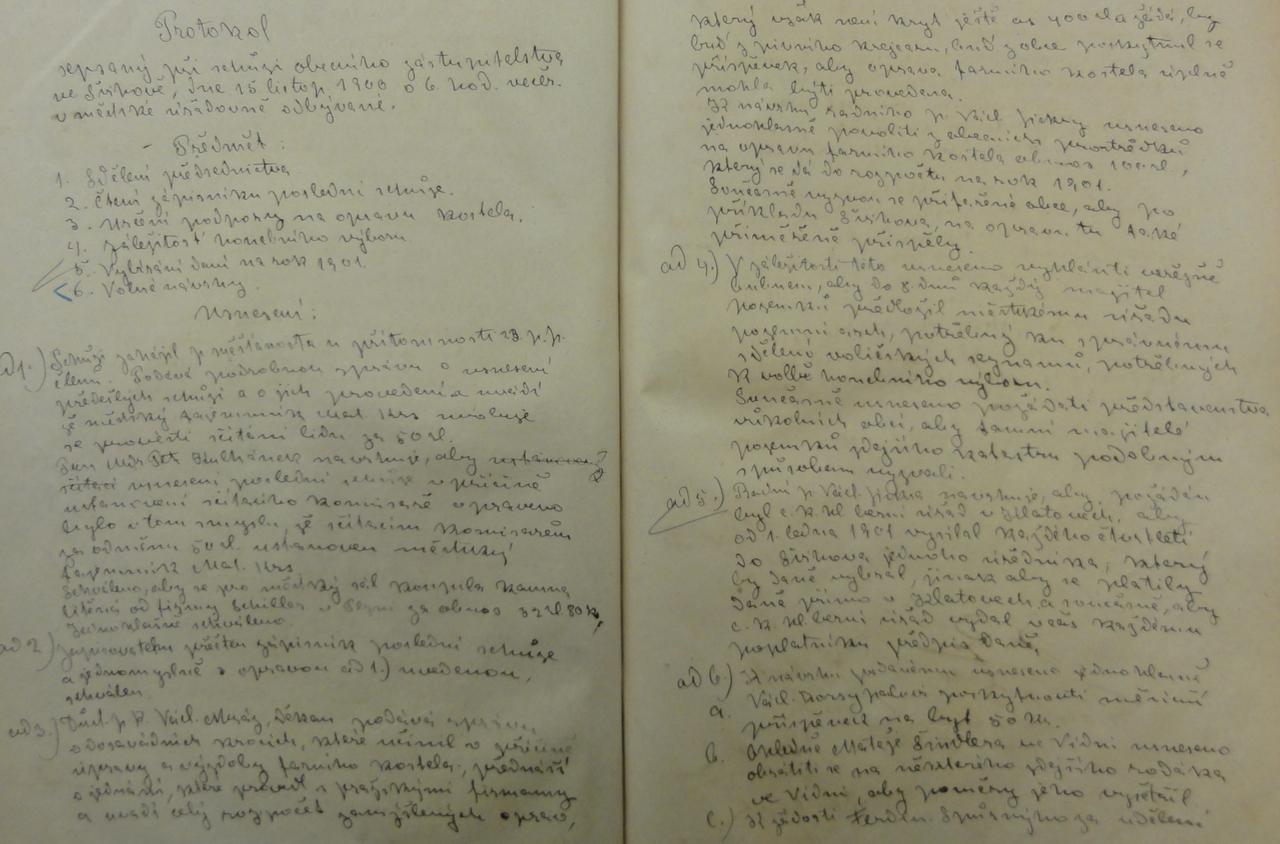 Protokol
sepsaný při schůzi obecního zastupitelstva
ve Sušicově, dne 15 listop. 1900 o 6. hod. večer.
v městské úřadovně odbývané.
Předmět:
1. Sdělení předsednictva
2. Čtení zápisníku poslední schůze.
3. Určení podpory na opravu kostela.
4. Záležitost honebního výboru
5. Vybírání daní na rok 1901.
6. Volné návrhy.
Usnesení:
ad 1.) Schůzi zahájil p. městánosta u přítomnosti 23 p. p.
členů. Podává podrobnou zprávu o usnesení
předešlých schůzí a o jich provedení a uvádí
že městský tajemník Mat. Krs uvoluje
se provésti sčítání lidu za 50 zl.
Pan navrhuje, aby
usnesení poslední schůze v příčině
ustanovení sčítacího komisaře opraveno
bylo v tom smyslu, že sčítacím komisařem
za odměnu 50 zl. ustanoven městský
tajemník Mat. Krs
Schváleno, aby se pro městský sál koupila kamna
od firmy Schiller v Plzni za obnos 32 zl 80 k,
Jednohlasně schváleno.
ad 2.) přečten zápisník poslední schůze
a jednomyslně s opravou ad 1.) uvedenou,
schválen.
ad 3.) Důst. p. P. Václ. děkan podává zprávu
o dosavádních krocích, které učinil v příčině
úpravy a výzdoby farního kostela, přednáší
o jednání, které provedl s pražskými firmami
a uvádí celý rozpočet zamýšlených oprav,
který však není kryt ještě as 400 zl a žádá, by
buď z pivního krejcaru, buď z obce poskytnul se
příspěvek, aby oprava farního kostela úplně
mohla býti provedena.
K návrhu radního p. Václ. Jickry usneseno
jednohlasně povoliti z obecních prostředků
na opravu farního kostela obnos 100 zl.,
který se dá do rozpočtu na rok 1901.
Současně vyzvou se přifařené obce, aby po
příkladu na opravu tu také
přiměřeně přispěly.
ad 4.) V záležitosti této usneseno vyhlásiti veřejně
bubnem, aby do 8 dnů každý majitel
pozemků předložil městskému úřadu
pozemn. arch, potřebný ku správnému
sdělení voličských seznamů, potřebných
k volbě honebního výboru.
Současně usneseno požádati představenstva
okolních obcí, aby tamní majitelé
pozemků zdejšího katastru podobným
způsobem vyzvali.
ad 5.) Radní p. Václ. Jickra navrhuje, aby požádán
byl c. k. hl. berní úřad v Klatovech, aby
od 1. ledna 1901 vyslal každého čtvrtletí
do jednoho úředníka, který
by daně vybíral, jinak aby se platily
daně přímo v Klatovech a současně, aby
c. k. hl. berní úřad vydal včas každému
poplatníku předpis daně.
ad 6.) K návrhu podanému usneseno jednohlasně
a. Václ. poskytnouti měsíční
příspěvek na byt 50 kr.
b. Ohledně Matěje Šindlera ve Vídni usneseno
obrátiti se na některého zdejšího rodáka
ve Vídni, aby poměry jeho vyšetřil
c.) K žádosti Ferdin. za udělení